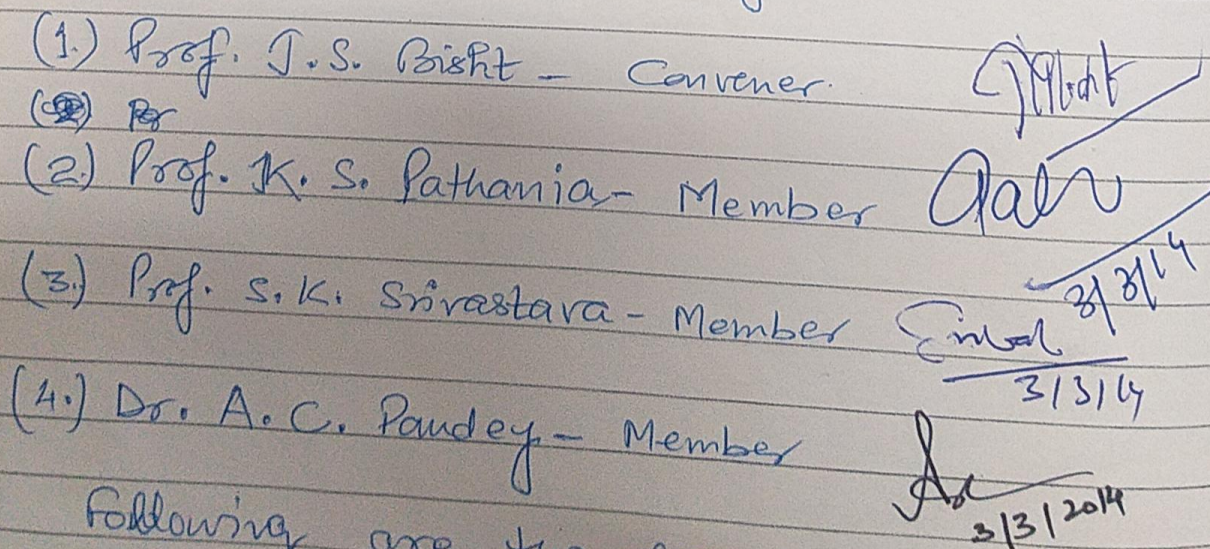 (1.) Prof. J.S. Bisht - Convener.
(2.) Prof. K. S. Pathania - Member
3/3/14
(3.) Prof. S.K. Srivastava - Member
3/3/14
(4.) Dr. A.C. Pandey - Member
3/3/2014
Following are